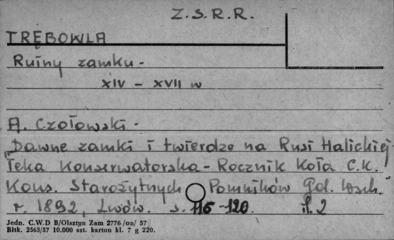 Z.S.R.R.
TRĘBOWLA
Ruiny zamku -
XIV - XVII w
A. Czołowski -
"Dawne zamki i twierdze na Rusi Halickiej
Teka Konserwatorska - Rocznik Koła C.K.
Kons. Starożytnych Pomników Gal. Wsch.
r. 1892, Lwów. s. 116-120. il. 2
Jedn. C.W.D B/Olsztyn Zam 2776 /on/ 57
Bltk. 2563/57 10.000 szt. karton kl. 7 g 220.